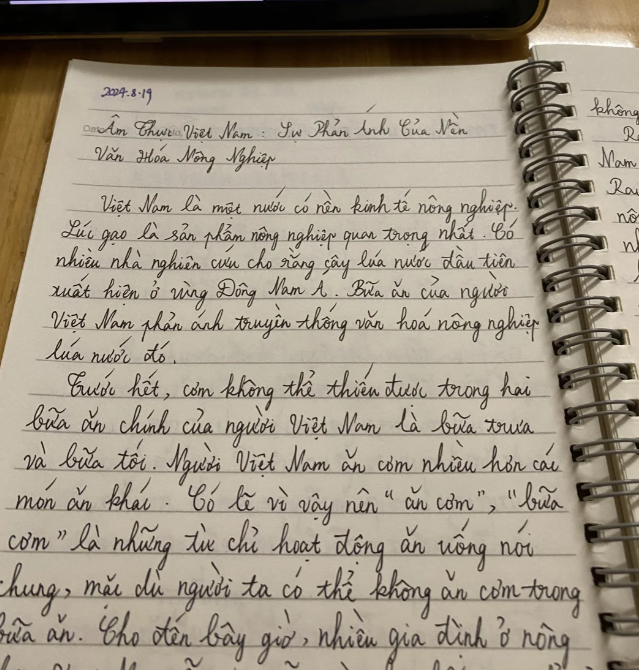 2024.8.19
Ẩm Thực Việt Nam : Sự Phản Ánh Của Nền
Văn Hóa Nông Nghiệp
Việt Nam là một nước có nền kinh tế nông nghiệp.
Lúc gạo là sản phẩm nông nghiệp quan trọng nhất. Có
nhiều nhà nghiên cưu cho rằng cây lúa nước đầu tiên
xuất hiện ở vùng Đông Nam Á. Bữa ăn của người
Việt Nam phản ánh truyền thống văn hoá nông nghiệp
lúa nước đó.
Trước hết, cơm không thể thiếu được trong hai
bữa ăn chính của người Việt Nam là bữa trưa
và bữa tối. Người Việt Nam ăn cơm nhiều hơn các
món ăn khác. Có lẽ vì vậy nên "ăn cơm", "bữa
cơm" là những từ chỉ hoạt động ăn uống nói
chung, mặc dù người ta có thể không ăn cơm trong
bữa ăn. Cho đến bây giờ, nhiều gia đình ở nông
không
Nam
nô